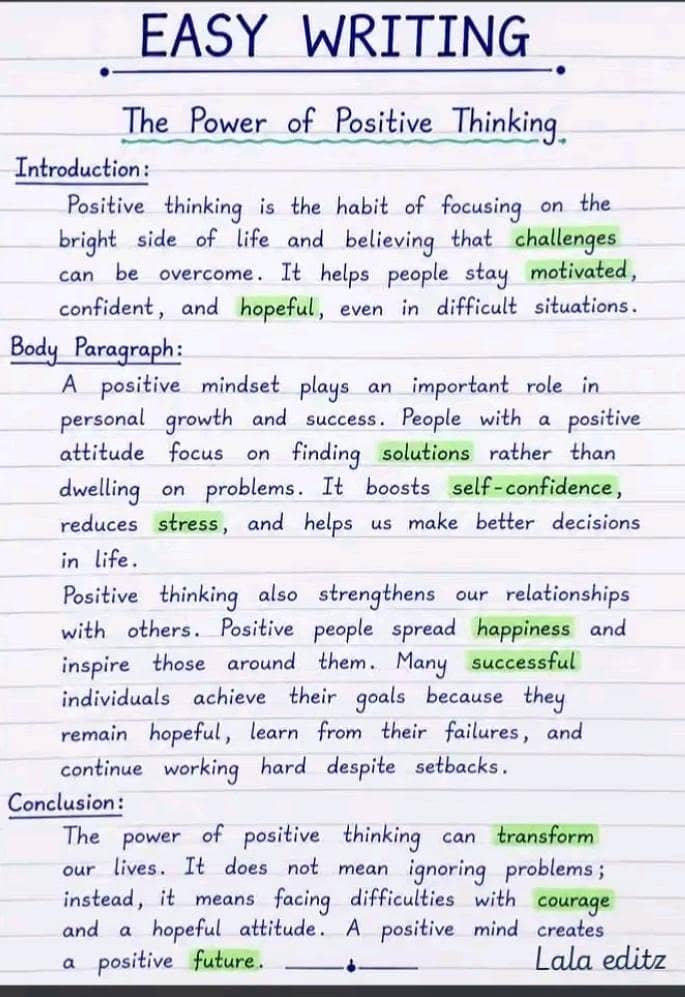 EASY WRITING
The Power of Positive Thinking.
Introduction:
Positive thinking is the habit of focusing on the
bright side of life and believing that challenges
can be overcome. It helps people stay motivated,
confident, and hopeful, even in difficult situations.
Body Paragraph:
A positive mindset plays an important role in
personal growth and success. People with a positive
attitude focus on finding solutions rather than
dwelling on problems. It boosts self-confidence,
reduces stress, and helps us make better decisions
in life.
Positive thinking also strengthens our relationships
with others. Positive people spread happiness and
inspire those around them. Many successful
individuals achieve their goals because they
remain hopeful, learn from their failures, and
continue working hard despite setbacks.
Conclusion:
The power of positive thinking can transform
our lives. It does not mean ignoring problems;
instead, it means facing difficulties with courage
and a hopeful attitude. A positive mind creates
a positive future.
Lala editz